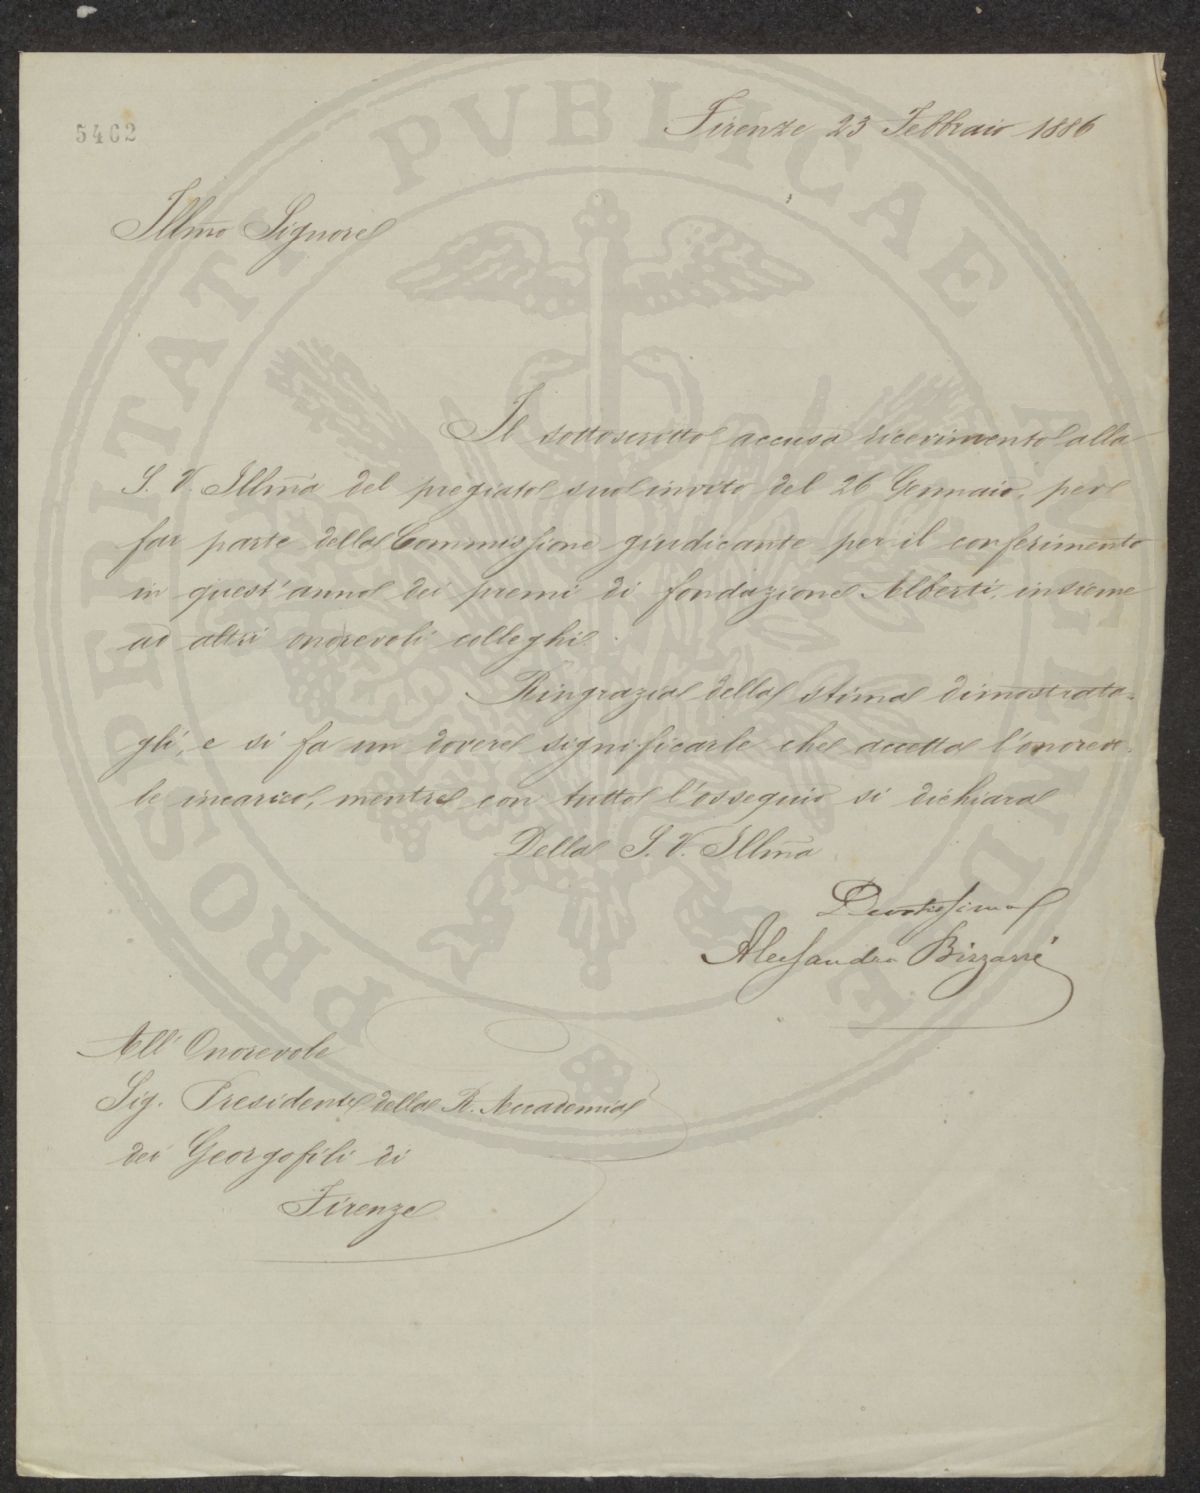 5462
Firenze 23 Febbraio 1886
Illmo Signore
Il sottoscritto accusa ricevimento alla
S. V. Illma del pregiato suo invito del 26 Gennaio, per
far parte della Commissione giudicante per il conferimento
in quest'anno dei premi di fondazione Alberti, insieme
ad altri onorevoli colleghi.
Ringrazia della stima dimostrata-
gli, e si fa un dovere significarle che accetta l'onorevo-
le incarico, mentre con tutto l'ossequio si dichiara
Della S. V. Illma
Devotissimo
Alessandro Bizzarri
All' Onorevole
Sig. Presidente della R. Accademia
dei Georgofili di
Firenze
PROSPERITATI PVBLICAE AVGENDAE